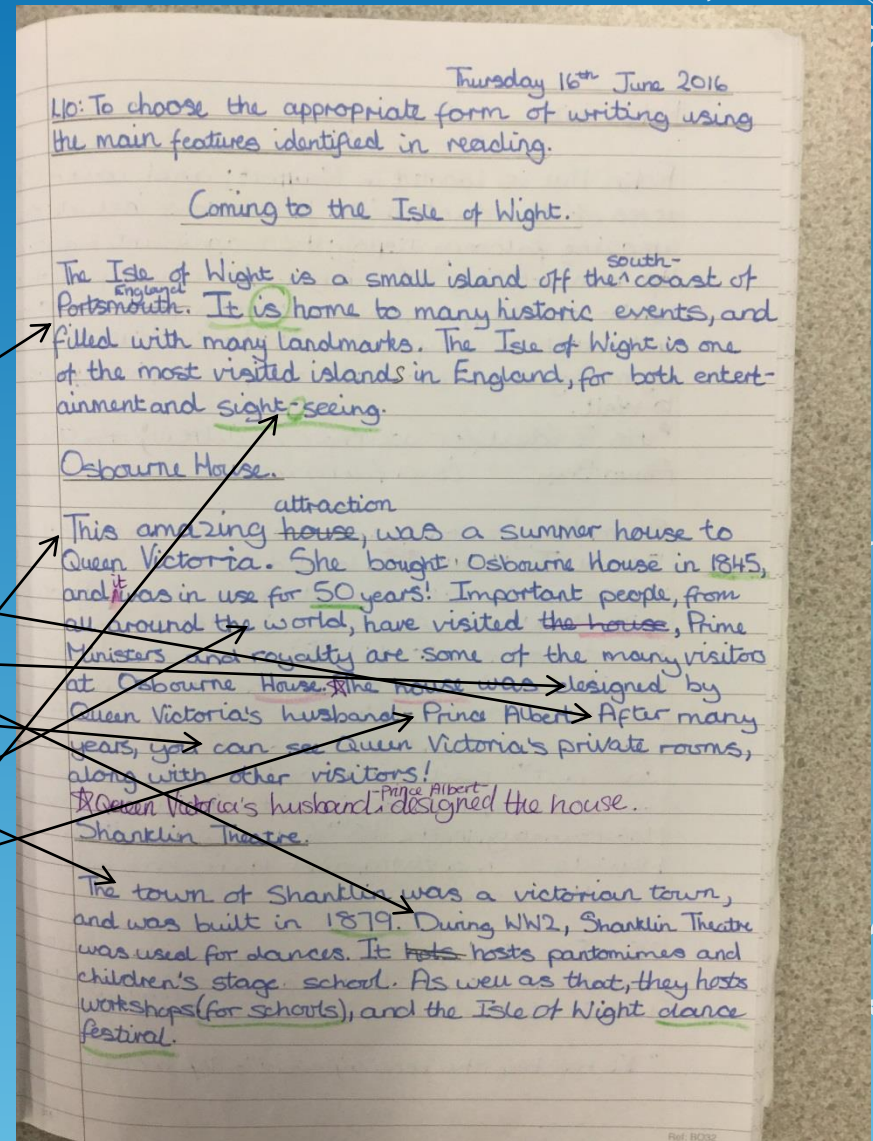 Thursday 16th June 2016
L/O: To choose the appropriate form of writing using
the main features identified in reading.
Coming to the Isle of Wight.
The Isle of Wight is a small island off the ^south- coast of
Portsmouth England. It is home to many historic events, and
filled with many landmarks. The Isle of Wight is one
of the most visited islands in England, for both entert-
ainment and sight-seeing.
Osbourne House.
attraction
This amazing house, was a summer house to
Queen Victoria. She bought Osbourne House in 1845,
and it was in use for 50 years! Important people, from
all around the world, have visited the house, Prime
Ministers and royalty are some of the many visitors
at Osbourne House. ☆The house was designed by
Queen Victoria's husband - Prince Albert. After many
years, you can see Queen Victoria's private rooms,
along with other visitors!
☆Queen Victoria's husband -Prince Albert- designed the house.
Shanklin Theatre.
The town of Shanklin was a victorian town,
and was built in 1879. During WW2, Shanklin Theatre
was used for dances. It hots hosts pantomimes and
children's stage school. As well as that, they hosts
workshops (for schools), and the Isle of Wight dance
festival.
Ref. BO32